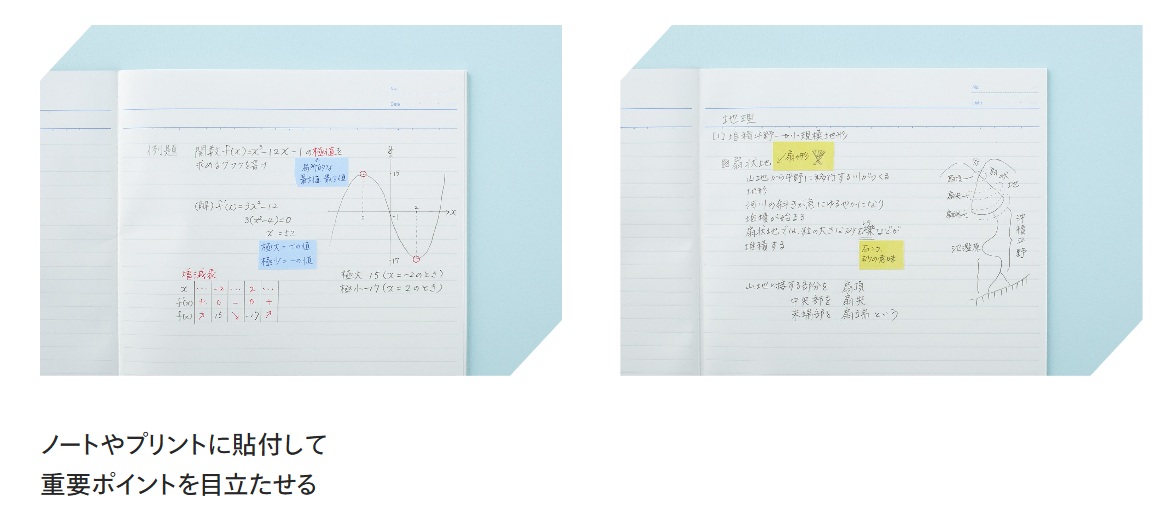 No.
Date
例題 関数 f(x)=x³-12x-1の極値を
求めるグラフを書け
局所的な
最大値 最小値
(解) f'(x)=3x²-12
3(x²-4)=0
極大=-の値
極小=-の値
増減表
x … -2 … 2 …
f'(x) + 0 - 0 +
f(x) ↗ 15 ↘ -17 ↗
y
15
-2
2
-1
x
-17
極大 15 (x=-2のとき)
極小-17 (x=2のとき)
No.
Date
地理
(1) 堆積平野-小規模地形
扇状地
扇の形
山地から平野に移行する川がつくる
地形
河川の傾斜が急にゆるやかになり
堆積が始まる
扇状地では、粒の大きな砂や礫などが
堆積する
石ころ
砂の意味
山地と接する部分を 扇頂
中央部を 扇央
末端部を 扇端 という
扇頂
扇央
扇端
扇状地
氾濫原
沖積平野
ノートやプリントに貼付して
重要ポイントを目立たせる